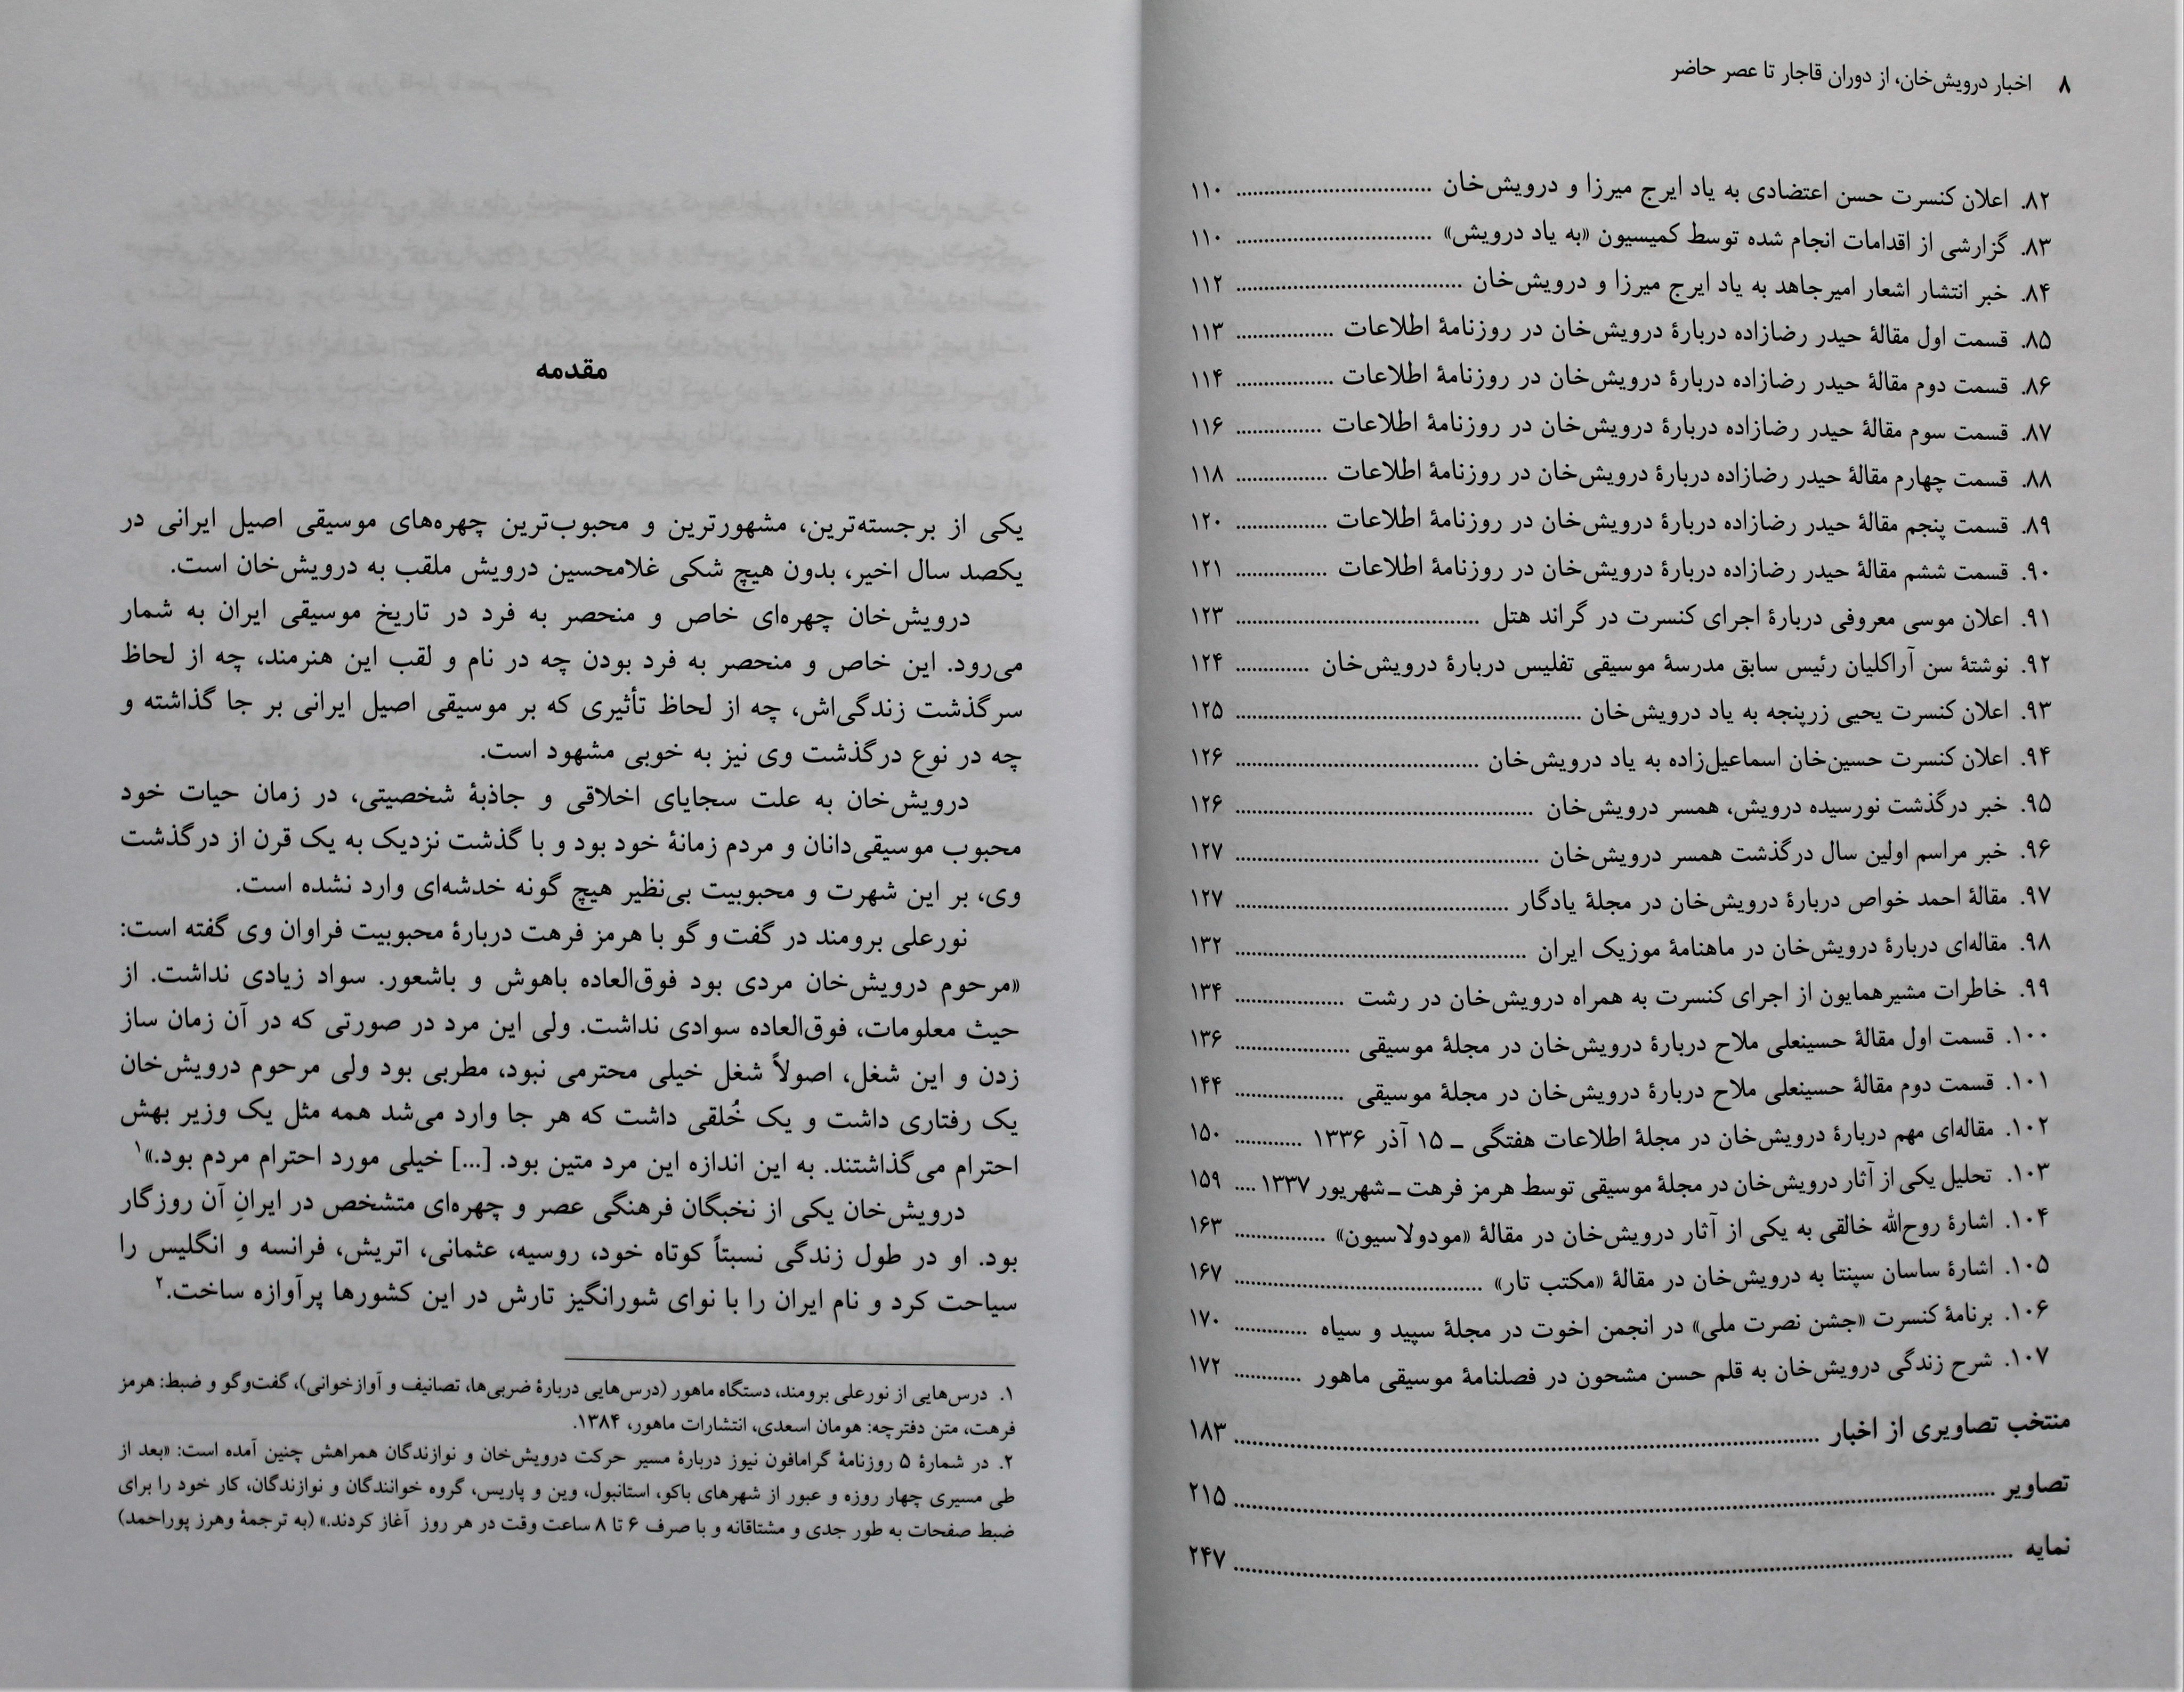 ۸ اخبار درویش‌خان، از دوران قاجار تا عصر حاضر
۸۲. اعلان کنسرت حسن اعتضادی به یاد ایرج میرزا و درویش‌خان ........ ۱۱۰
۸۳. گزارشی از اقدامات انجام شده توسط کمیسیون «به یاد درویش» ........ ۱۱۰
۸۴. خبر انتشار اشعار امیرجاهد به یاد ایرج میرزا و درویش‌خان ........ ۱۱۲
۸۵. قسمت اول مقالهٔ حیدر رضازاده دربارهٔ درویش‌خان در روزنامهٔ اطلاعات ........ ۱۱۳
۸۶. قسمت دوم مقالهٔ حیدر رضازاده دربارهٔ درویش‌خان در روزنامهٔ اطلاعات ........ ۱۱۴
۸۷. قسمت سوم مقالهٔ حیدر رضازاده دربارهٔ درویش‌خان در روزنامهٔ اطلاعات ........ ۱۱۶
۸۸. قسمت چهارم مقالهٔ حیدر رضازاده دربارهٔ درویش‌خان در روزنامهٔ اطلاعات ........ ۱۱۸
۸۹. قسمت پنجم مقالهٔ حیدر رضازاده دربارهٔ درویش‌خان در روزنامهٔ اطلاعات ........ ۱۲۰
۹۰. قسمت ششم مقالهٔ حیدر رضازاده دربارهٔ درویش‌خان در روزنامهٔ اطلاعات ........ ۱۲۱
۹۱. اعلان موسی معروفی دربارهٔ اجرای کنسرت در گراند هتل ........ ۱۲۳
۹۲. نوشتهٔ سن آراکلیان رئیس سابق مدرسهٔ موسیقی تفلیس دربارهٔ درویش‌خان ........ ۱۲۴
۹۳. اعلان کنسرت یحیی زرپنجه به یاد درویش‌خان ........ ۱۲۵
۹۴. اعلان کنسرت حسین‌خان اسماعیل‌زاده به یاد درویش‌خان ........ ۱۲۶
۹۵. خبر درگذشت نورسیده درویش، همسر درویش‌خان ........ ۱۲۶
۹۶. خبر مراسم اولین سال درگذشت همسر درویش‌خان ........ ۱۲۷
۹۷. مقالهٔ احمد خواص دربارهٔ درویش‌خان در مجلهٔ یادگار ........ ۱۲۷
۹۸. مقاله‌ای دربارهٔ درویش‌خان در ماهنامهٔ موزیک ایران ........ ۱۳۲
۹۹. خاطرات مشیرهمایون از اجرای کنسرت به همراه درویش‌خان در رشت ........ ۱۳۴
۱۰۰. قسمت اول مقالهٔ حسینعلی ملاح دربارهٔ درویش‌خان در مجلهٔ موسیقی ........ ۱۳۶
۱۰۱. قسمت دوم مقالهٔ حسینعلی ملاح دربارهٔ درویش‌خان در مجلهٔ موسیقی ........ ۱۴۴
۱۰۲. مقاله‌ای مهم دربارهٔ درویش‌خان در مجلهٔ اطلاعات هفتگی ـ ۱۵ آذر ۱۳۳۶ ........ ۱۵۰
۱۰۳. تحلیل یکی از آثار درویش‌خان در مجلهٔ موسیقی توسط هرمز فرهت ـ شهریور ۱۳۳۷ .... ۱۵۹
۱۰۴. اشارهٔ روح‌الله خالقی به یکی از آثار درویش‌خان در مقالهٔ «مودولاسیون» ........ ۱۶۳
۱۰۵. اشارهٔ ساسان سپنتا به درویش‌خان در مقالهٔ «مکتب تار» ........ ۱۶۷
۱۰۶. برنامهٔ کنسرت «جشن نصرت ملی» در انجمن اخوت در مجلهٔ سپید و سیاه ........ ۱۷۰
۱۰۷. شرح زندگی درویش‌خان به قلم حسن مشحون در فصلنامهٔ موسیقی ماهور ........ ۱۷۲
منتخب تصاویری از اخبار ........ ۱۸۳
تصاویر ........ ۲۱۵
نمایه ........ ۲۴۷
مقدمه
یکی از برجسته‌ترین، مشهورترین و محبوب‌ترین چهره‌های موسیقی اصیل ایرانی در
یکصد سال اخیر، بدون هیچ شکی غلامحسین درویش ملقب به درویش‌خان است.
درویش‌خان چهره‌ای خاص و منحصر به فرد در تاریخ موسیقی ایران به شمار
می‌رود. این خاص و منحصر به فرد بودن چه در نام و لقب این هنرمند، چه از لحاظ
سرگذشت زندگی‌اش، چه از لحاظ تأثیری که بر موسیقی اصیل ایرانی بر جا گذاشته و
چه در نوع درگذشت وی نیز به خوبی مشهود است.
درویش‌خان به علت سجایای اخلاقی و جاذبهٔ شخصیتی، در زمان حیات خود
محبوب موسیقی‌دانان و مردم زمانهٔ خود بود و با گذشت نزدیک به یک قرن از درگذشت
وی، بر این شهرت و محبوبیت بی‌نظیر هیچ گونه خدشه‌ای وارد نشده است.
نورعلی برومند در گفت و گو با هرمز فرهت دربارهٔ محبوبیت فراوان وی گفته است:
«مرحوم درویش‌خان مردی بود فوق‌العاده باهوش و باشعور. سواد زیادی نداشت. از
حیث معلومات، فوق‌العاده سوادی نداشت. ولی این مرد در صورتی که در آن زمان ساز
زدن و این شغل، اصولاً شغل خیلی محترمی نبود، مطربی بود ولی مرحوم درویش‌خان
یک رفتاری داشت و یک خُلقی داشت که هر جا وارد می‌شد همه مثل یک وزیر بهش
احترام می‌گذاشتند. به این اندازه این مرد متین بود. [...] خیلی مورد احترام مردم بود.»۱
درویش‌خان یکی از نخبگان فرهنگی عصر و چهره‌ای متشخص در ایرانِ آن روزگار
بود. او در طول زندگی نسبتاً کوتاه خود، روسیه، عثمانی، اتریش، فرانسه و انگلیس را
سیاحت کرد و نام ایران را با نوای شورانگیز تارش در این کشورها پرآوازه ساخت.۲
۱. درس‌هایی از نورعلی برومند، دستگاه ماهور (درس‌هایی دربارهٔ ضربی‌ها، تصانیف و آوازخوانی)، گفت‌وگو و ضبط: هرمز
فرهت، متن دفترچه: هومان اسعدی، انتشارات ماهور، ۱۳۸۴.
۲. در شمارهٔ ۵ روزنامهٔ گرامافون نیوز دربارهٔ مسیر حرکت درویش‌خان و نوازندگان همراهش چنین آمده است: «بعد از
طی مسیری چهار روزه و عبور از شهرهای باکو، استانبول، وین و پاریس، گروه خوانندگان و نوازندگان، کار خود را برای
ضبط صفحات به طور جدی و مشتاقانه و با صرف ۶ تا ۸ ساعت وقت در هر روز آغاز کردند.» (به ترجمهٔ وهرز پوراحمد)